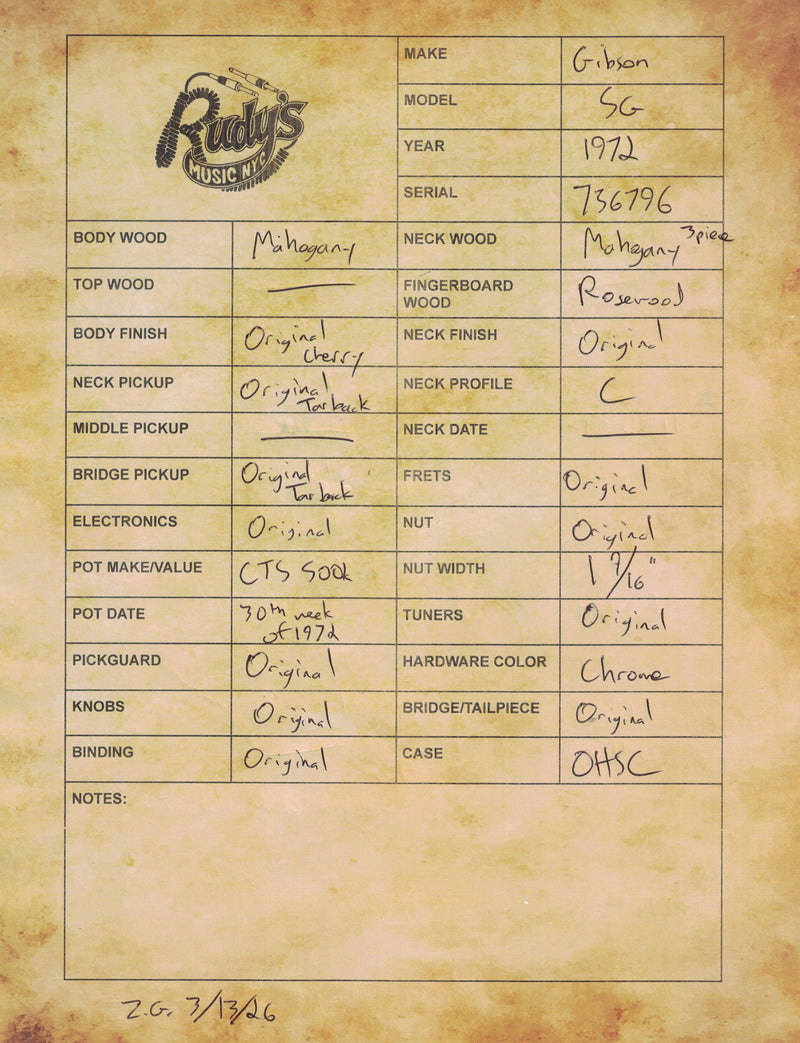 Rudy's
MUSIC NYC
MAKE Gibson
MODEL SG
YEAR 1972
SERIAL 736796
BODY WOOD Mahogany
NECK WOOD Mahogany 3 piece
TOP WOOD —
FINGERBOARD WOOD Rosewood
BODY FINISH Original Cherry
NECK FINISH Original
NECK PICKUP Original Tar back
NECK PROFILE C
MIDDLE PICKUP —
NECK DATE —
BRIDGE PICKUP Original Tar back
FRETS Original
ELECTRONICS Original
NUT Original
POT MAKE/VALUE CTS 500k
NUT WIDTH 1 7/16"
POT DATE 30th week of 1972
TUNERS Original
PICKGUARD Original
HARDWARE COLOR Chrome
KNOBS Original
BRIDGE/TAILPIECE Original
BINDING Original
CASE OHSC
NOTES:
Z.G. 3/13/26